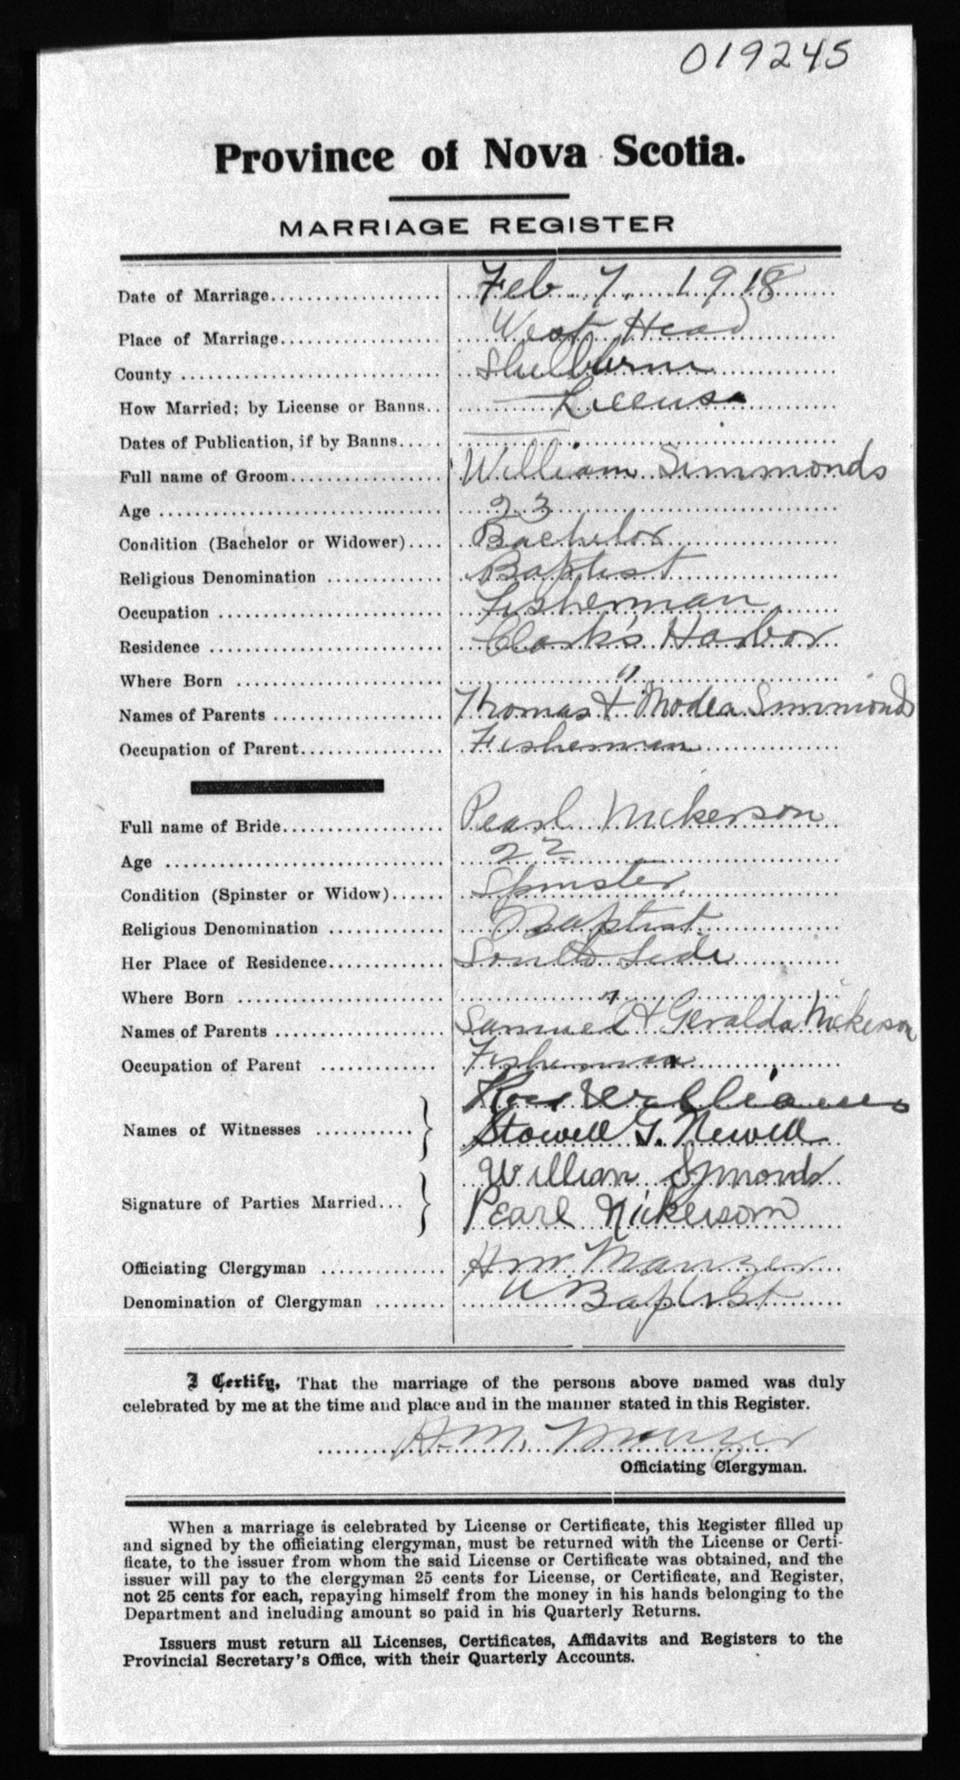 019245
Province of Nova Scotia.
MARRIAGE REGISTER
Date of Marriage.................... Feb 7. 1918
Place of Marriage................... West Head
County ............................. Shelburne
How Married; by License or Banns.. License
Dates of Publication, if by Banns.....
Full name of Groom.................. William Simmonds
Age ................................ 23
Condition (Bachelor or Widower).... Bachelor
Religious Denomination ............. Baptist
Occupation ......................... Fisherman
Residence .......................... Clark's Harbor
Where Born ......................... "
Names of Parents ................... Thomas & Simmonds
Occupation of Parent................ Fisherman
Full name of Bride.................. Pearl Nickerson
Age ................................ 22
Condition (Spinster or Widow)...... Spinster
Religious Denomination ............. Baptist
Her Place of Residence.............. South Side
Where Born ......................... "
Names of Parents ................... Samuel & Geralda Nickerson
Occupation of Parent ............. Fisherman
Names of Witnesses ...........
Stowell G. Newell
William Symonds
Signature of Parties Married...
Pearl Nickerson
Officiating Clergyman .............. H. M. Manzer
Denomination of Clergyman ........ U Baptist
I Certify, That the marriage of the persons above named was duly
celebrated by me at the time and place and in the manner stated in this Register.
H. M. Manzer
Officiating Clergyman.
When a marriage is celebrated by License or Certificate, this Register filled up
and signed by the officiating clergyman, must be returned with the License or Certi-
ficate, to the issuer from whom the said License or Certificate was obtained, and the
issuer will pay to the clergyman 25 cents for License, or Certificate, and Register,
not 25 cents for each, repaying himself from the money in his hands belonging to the
Department and including amount so paid in his Quarterly Returns.
Issuers must return all Licenses, Certificates, Affidavits and Registers to the
Provincial Secretary's Office, with their Quarterly Accounts.